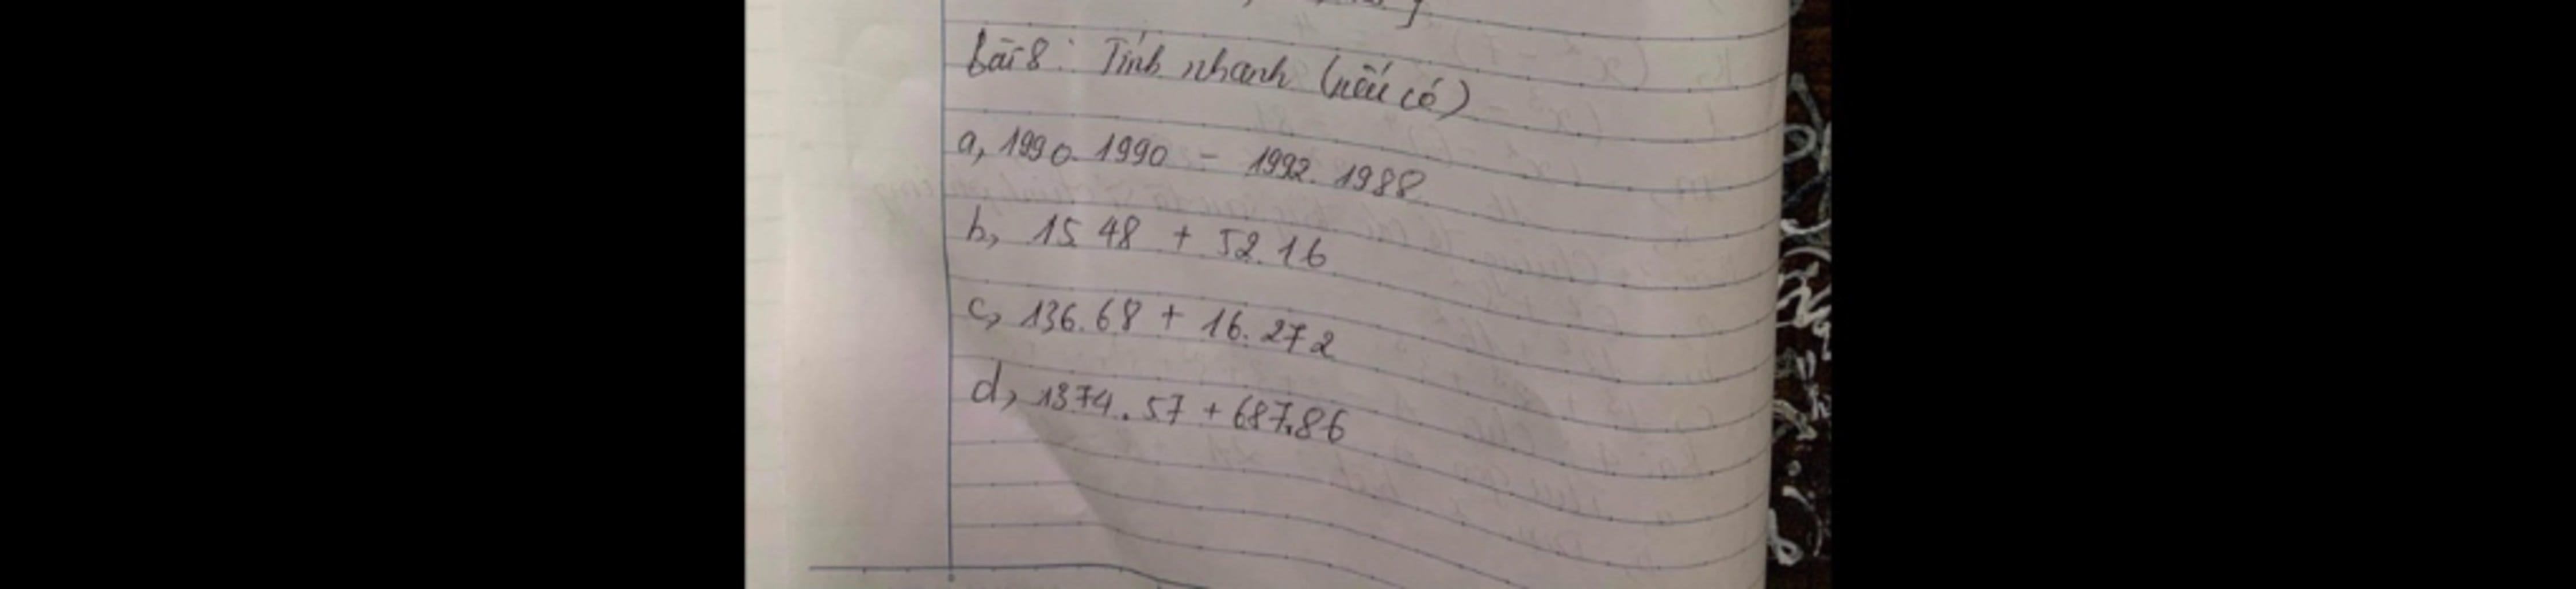 Bài 8: Tính nhanh (nếu có)
a, 1990.1990 - 1992.1988
b, 15.48 + 52.16
c, 136.68 + 16.272
d, 1374.57 + 687.86